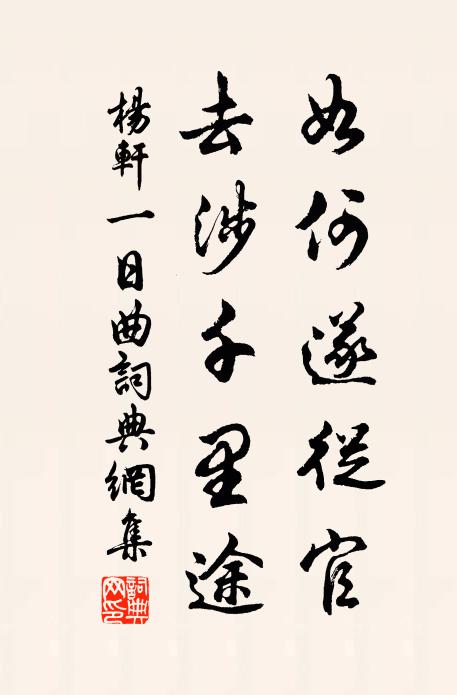 如何遂從官
去涉千里途
楊軒一日曲詞典網集
詞典網印